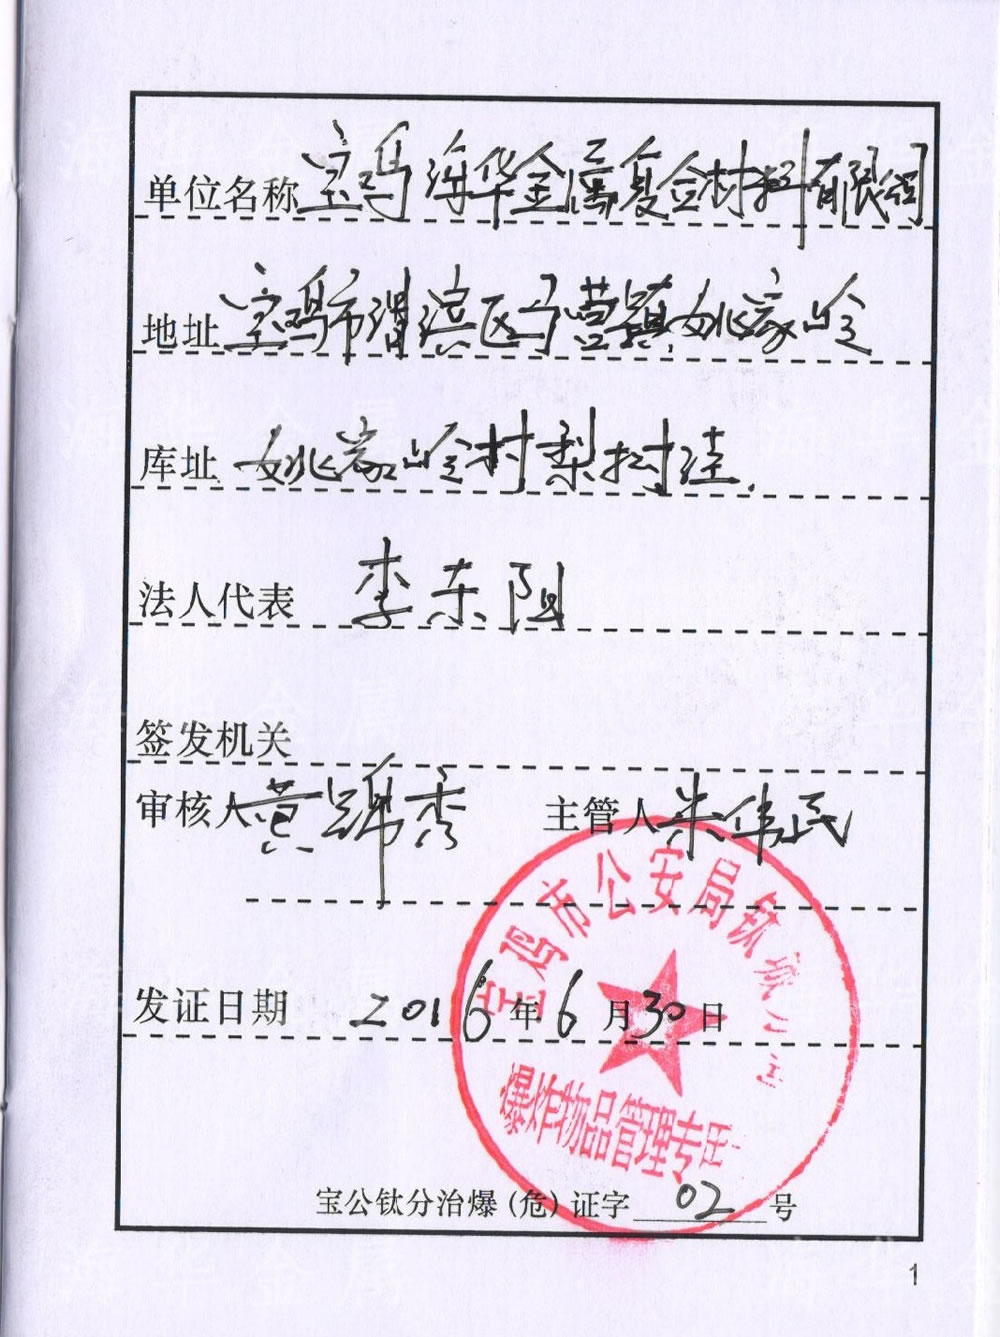 单位名称 宝鸡海华金属复合材料有限公司
地址 宝鸡市渭滨区马营镇姚家岭
库址 姚家岭村梨树洼.
法人代表 李东阳
签发机关
审核人 黄锦秀 主管人 朱伟民
宝鸡市公安局钛
发证日期 2016年6月30日
爆炸物品管理专
宝公钛分治爆(危)证字 02 号
1
海华金属